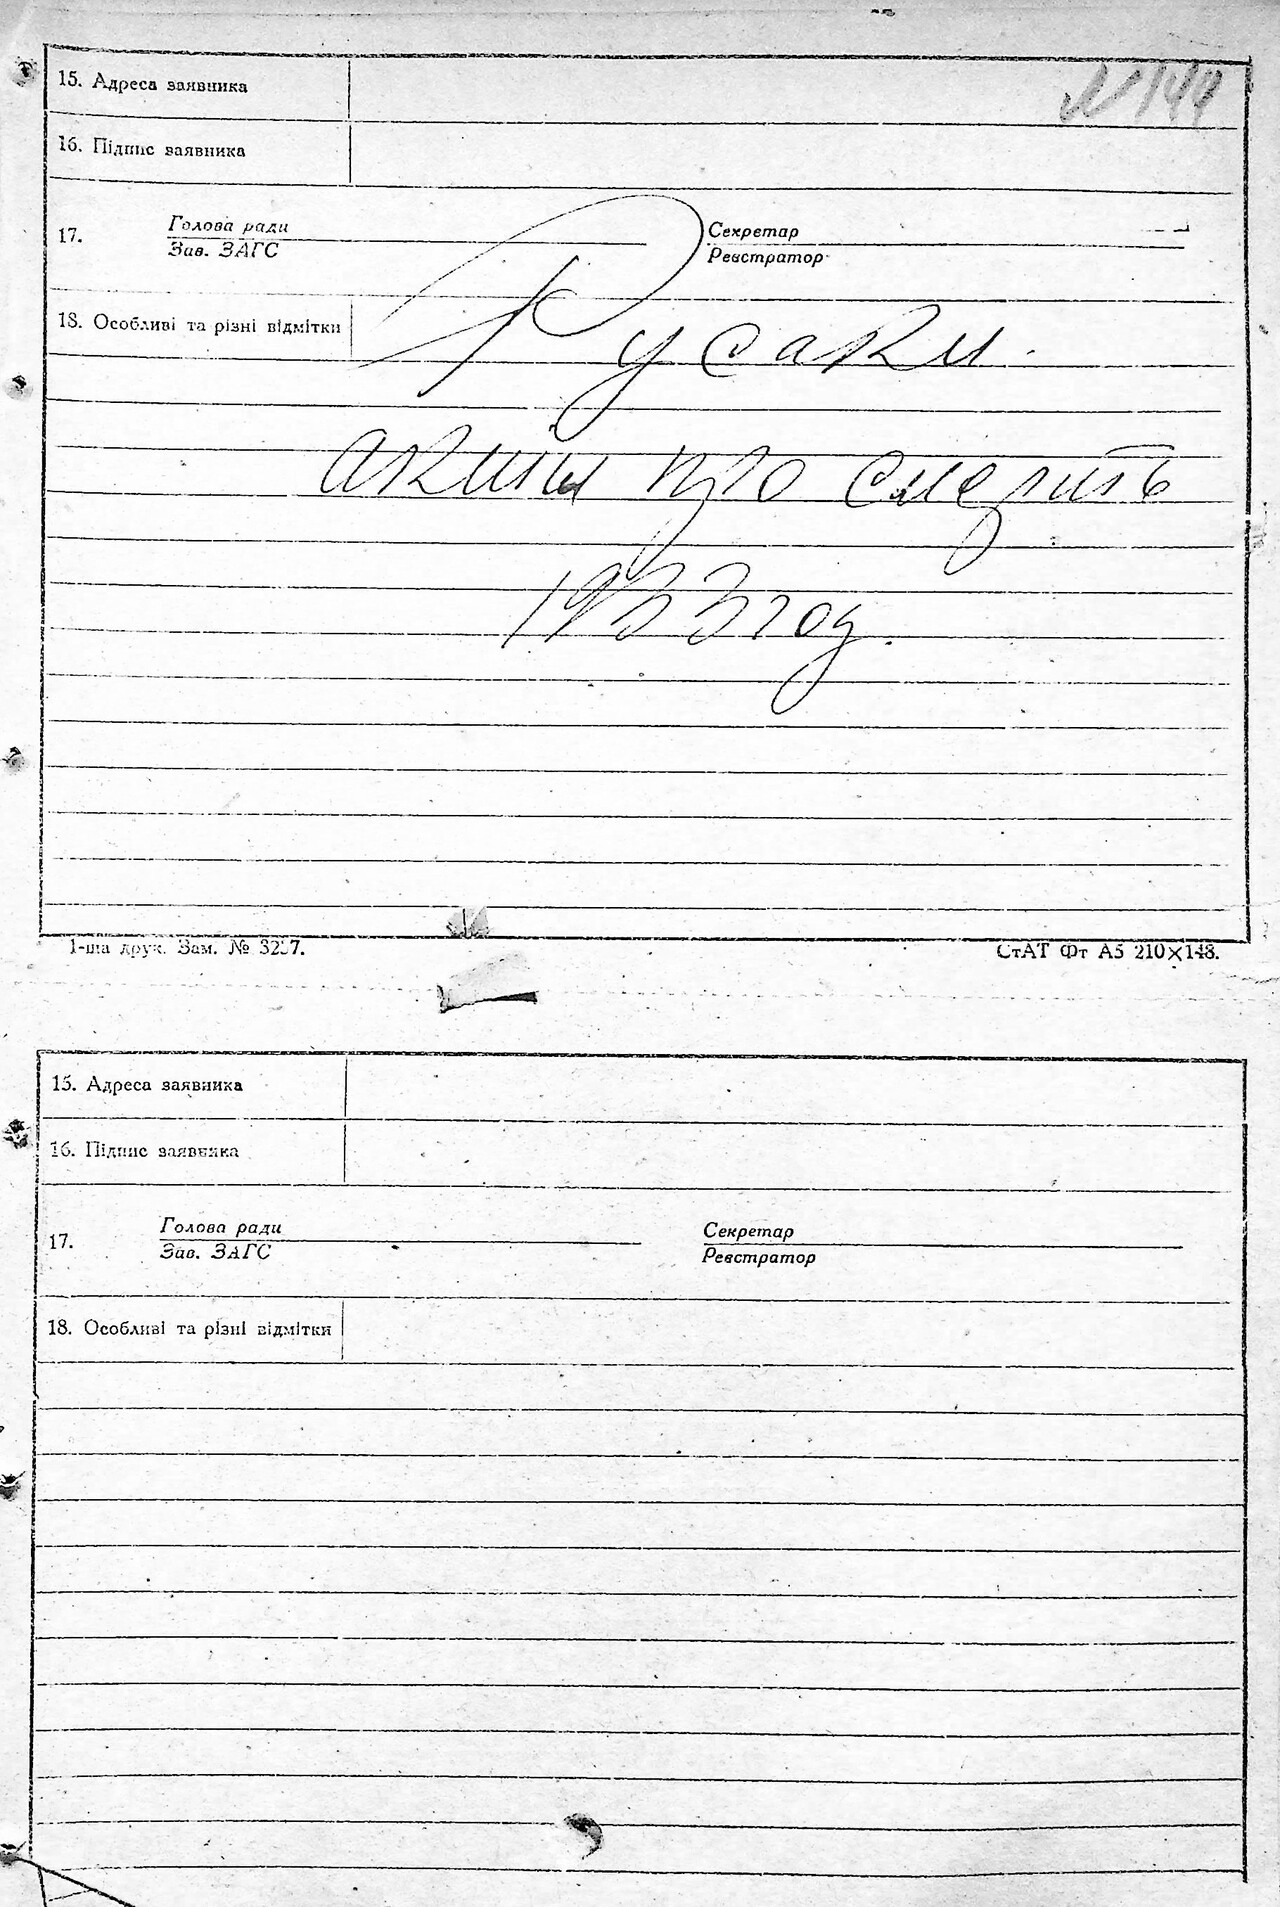 № 144
15. Адреса заявника
16. Підпис заявника
17. Голова ради Секретар
Зав. ЗАГС Реєстратор
18. Особливі та різні відмітки
Русаки.
акти про смерть
1933 год.
1-ша друк. Зам. № 3257. СтАТ Фт А5 210×148.
15. Адреса заявника
16. Підпис заявника
17. Голова ради Секретар
Зав. ЗАГС Реєстратор
18. Особливі та різні відмітки